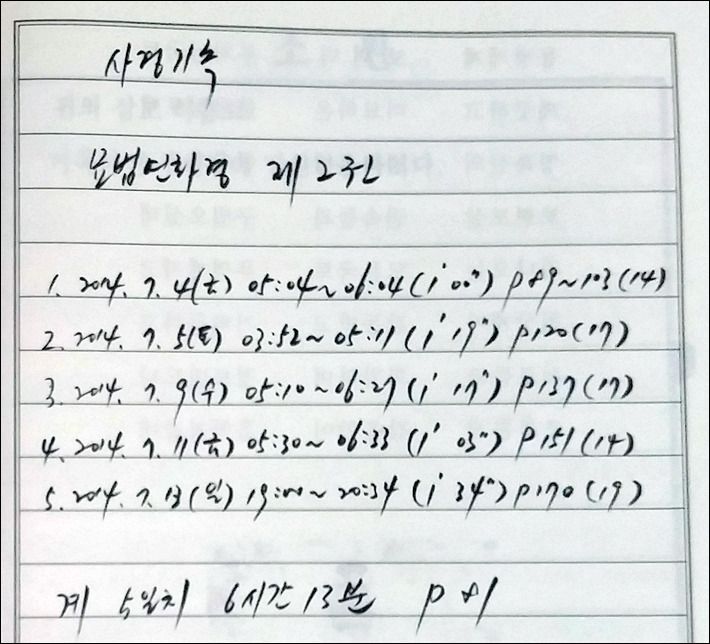 사경기록
묘법연화경 제2권
1. 2014. 7. 4(금) 05:04~06:04 (1' 00") p89~103 (14)
2. 2014. 7. 5(토) 03:52~05:11 (1' 19") p120 (17)
3. 2014. 7. 9(수) 05:10~06:27 (1' 17") p137 (17)
4. 2014. 7. 11(금) 05:30~06:33 (1' 03") p151 (14)
5. 2014. 7. 13(일) 19:00~20:34 (1' 34") p170 (19)
계 5일치 6시간 13분 p 81